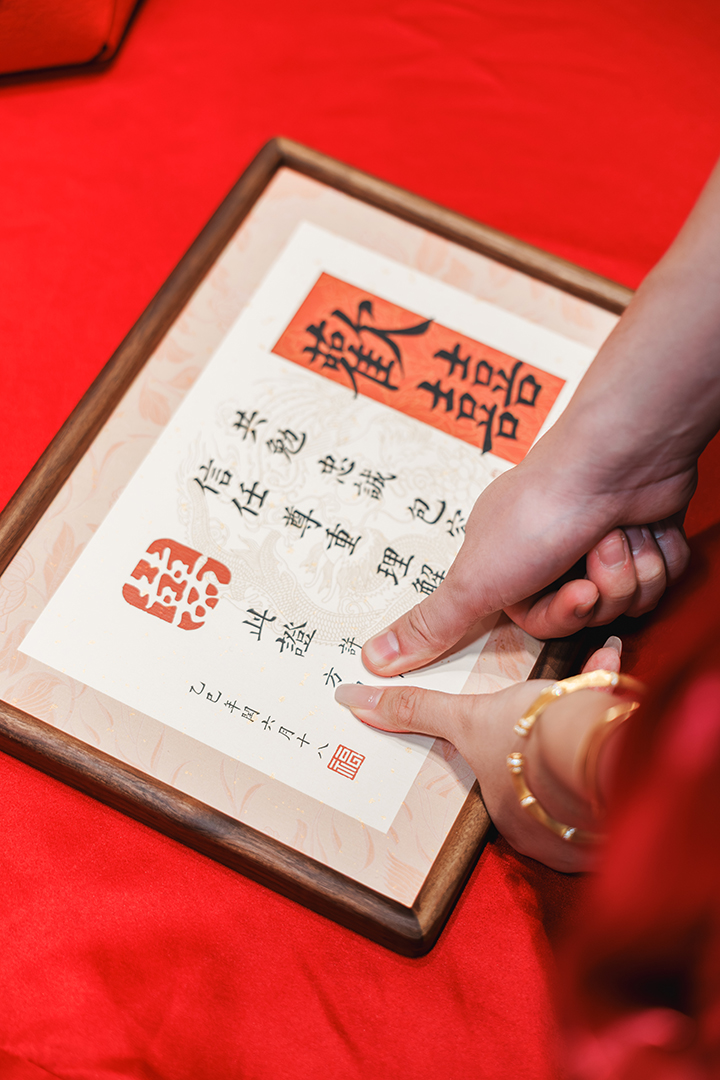 歡囍
共勉 忠誠 包容
信任 尊重 理解
囍
此證
許
方
乙巳年閏六月十八
福